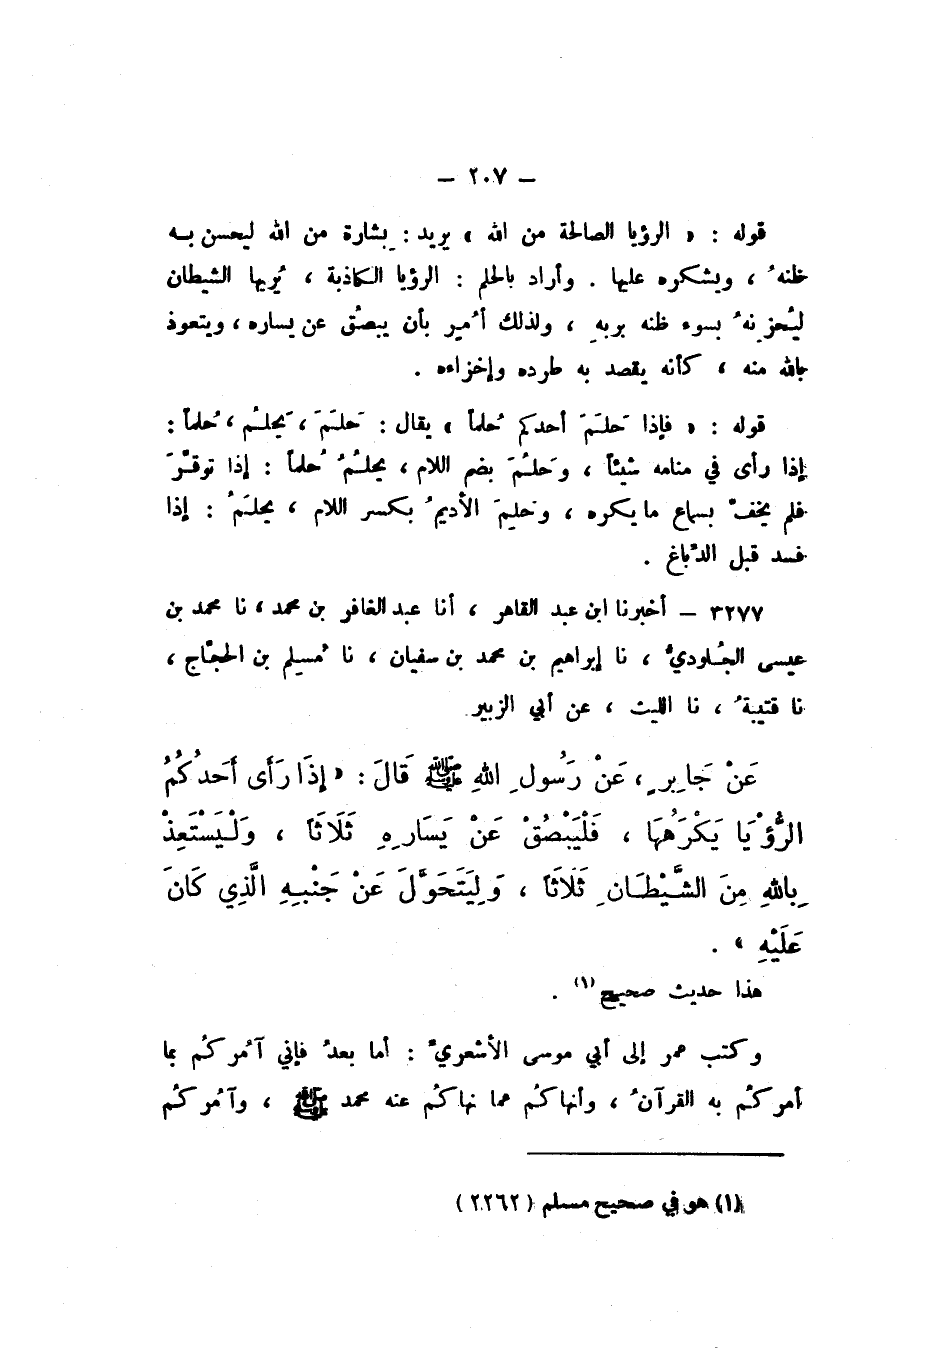 – ٢٠٧ –
قوله : « الرؤيا الصالحة من الله » يريد : بِشارة من الله ليحسن بـه
ظنهُ ، ويشكره عليها . وأراد بالحلم : الرؤيا الكاذبة ، يُريها الشيطان
ليُحزِنهُ بسوء ظنه بربهِ ، ولذلك أُمِر بأن يبصُق عن يساره ، ويتعوذ
بالله منه ، كأنه يقصد به طرده وإخزاءه .
قوله : « فإذا حَلَمَ أحدكم حُلماً » يقال : حَلَمَ ، يَحلُم ، حُلماً :
إذا رأى في منامه شيئاً ، وحَلُمَ بضم اللام ، يحلُمُ حُلماً : إذا توقَّرَ
فلم يخفَّ بسماع ما يكره ، وحَلِمَ الأديمُ بكسر اللام ، يحلَمُ : إذا
فسد قبل الدِّباغ .
٣٢٧٧ – أخبرنا ابن عبد القاهر ، أنا عبد الغافر بن محمد ، نا محمد بن
عيسى الجُلوديُّ ، نا إبراهيم بن محمد بن سفيان ، نا مُسلم بن الحجّاج ،
نا قتيبةُ ، نا الليث ، عن أبي الزبير
عَنْ جَابِرٍ ، عَنْ رَسُولِ اللهِ ﷺ قَالَ : « إِذَا رَأَى أَحَدُكُمُ
الرُّؤْيَا يَكْرَهُهَا ، فَلْيَبْصُقْ عَنْ يَسَارِهِ ثَلَاثاً ، وَلْيَسْتَعِذْ
بِاللهِ مِنَ الشَّيْطَانِ ثَلَاثاً ، وَلِيَتَحَوَّلَ عَنْ جَنْبِهِ الَّذِي كَانَ
عَلَيْهِ » .
هذا حديث صحيح (١) .
وكتب عمر إلى أبي موسى الأشعريِّ : أما بعدُ فإني آمُركُم بما
أمركُم به القرآنُ ، وأنهاكُم عما نهاكُم عنه محمد ﷺ ، وآمُركُم
(١) هو في صحيح مسلم ( ٢٢٦٢ )